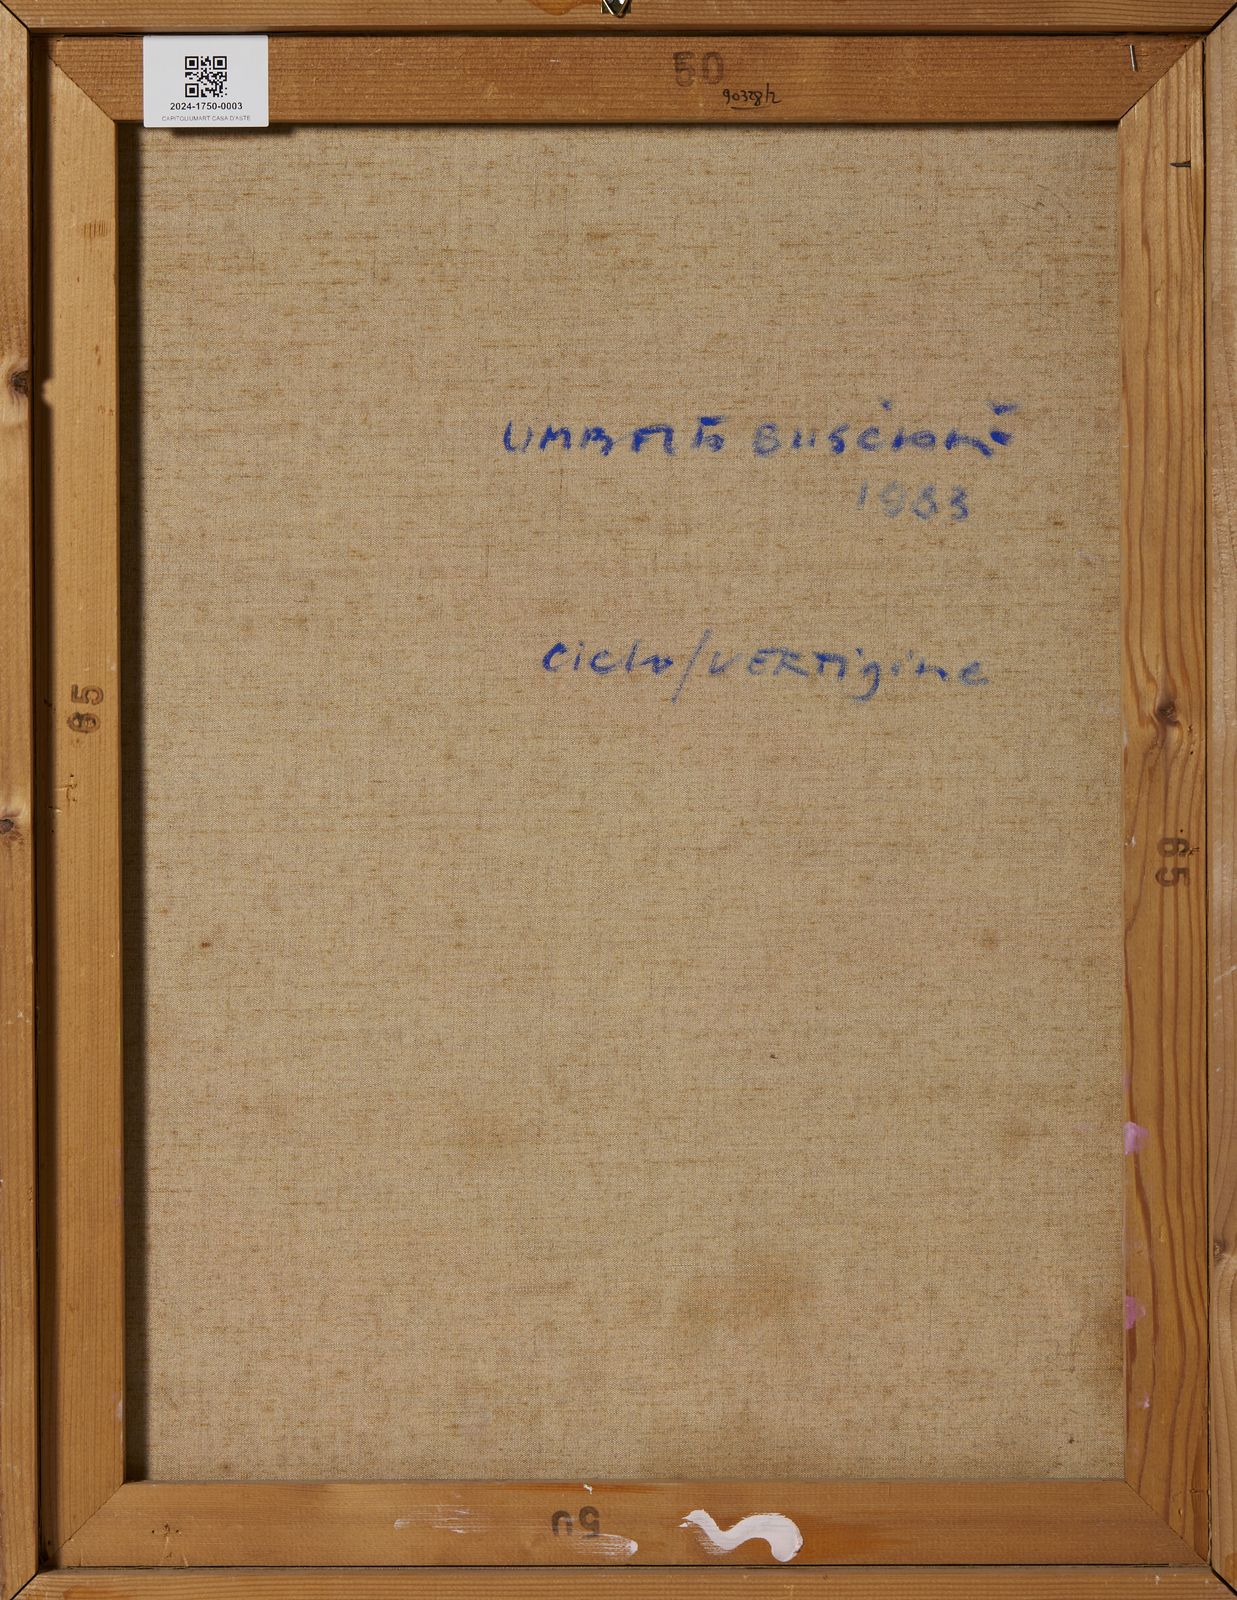 2024-1750-0003
CAPITOLIUMART CASA D'ASTE
50
90328/2
UMBERTO BUSCIONI
1983
Ciclo/VERTigine
65
65
50